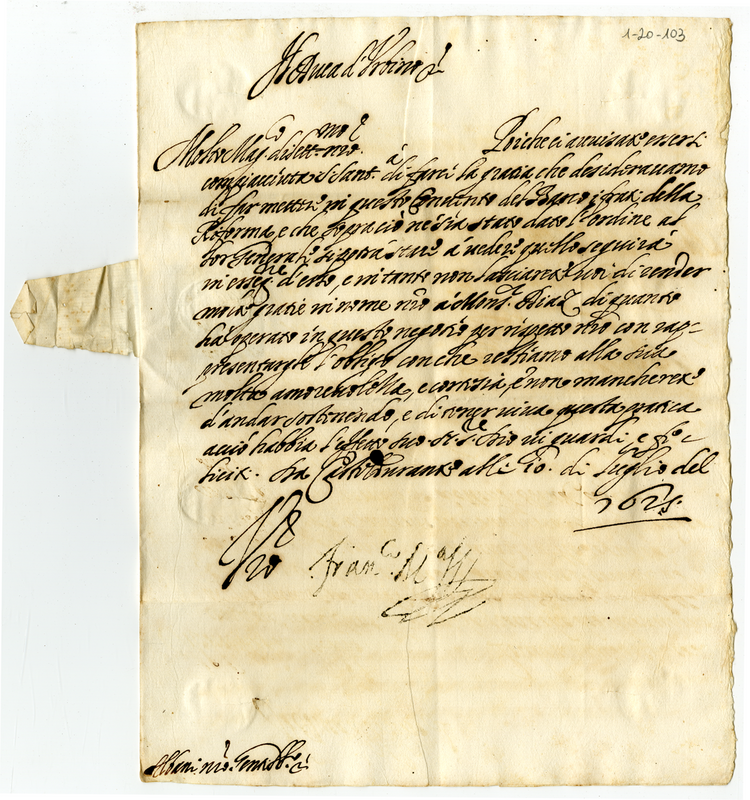 1-20-103
Il Duca d'Urbino &
Molto Mag.co dilett.mo n.ro Poiche ci avvisate essersi
compiacciuta S. Sant.à di farci la gratia che desideravamo
di far mettere in questo Convento del Barco i frati della
Riforma, e che sopra ciò ne sia stato dato l'ordine al
lor Generale, si potrà stare à vedere quello seguirà
in esseg.ne d'esso, e in tanto non lasciarete voi di render
molte gratie in nome n.ro à Mons.r Diaz di quanto
ha operato in questo negotio per rispetto n.ro con rap=
presentargli l'obligo con che restiamo alla sua
molta amorevolezza, e cortesia, e non mancherete
d'andar sollecitando, e di tener viva questa pratica
acciò habbia l'effetto suo
Dio vi guardi, e
Da Casteldurante alli di Luglio del
1625.
V.ro
Fran.co M.a
Albani n.ro